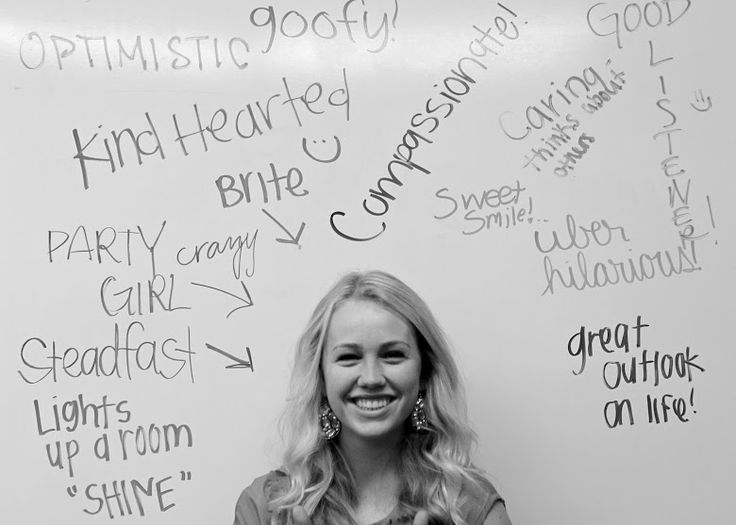 OPTIMISTIC
goofy!
Kind Hearted
Brite
Compassionate!
GOOD
LISTENER!
Caring-
thinks about
others
Sweet
Smile!..
uber
hilarious!
PARTY crazy
GIRL
Steadfast
Lights
up a room
"SHINE"
great
outlook
on life!